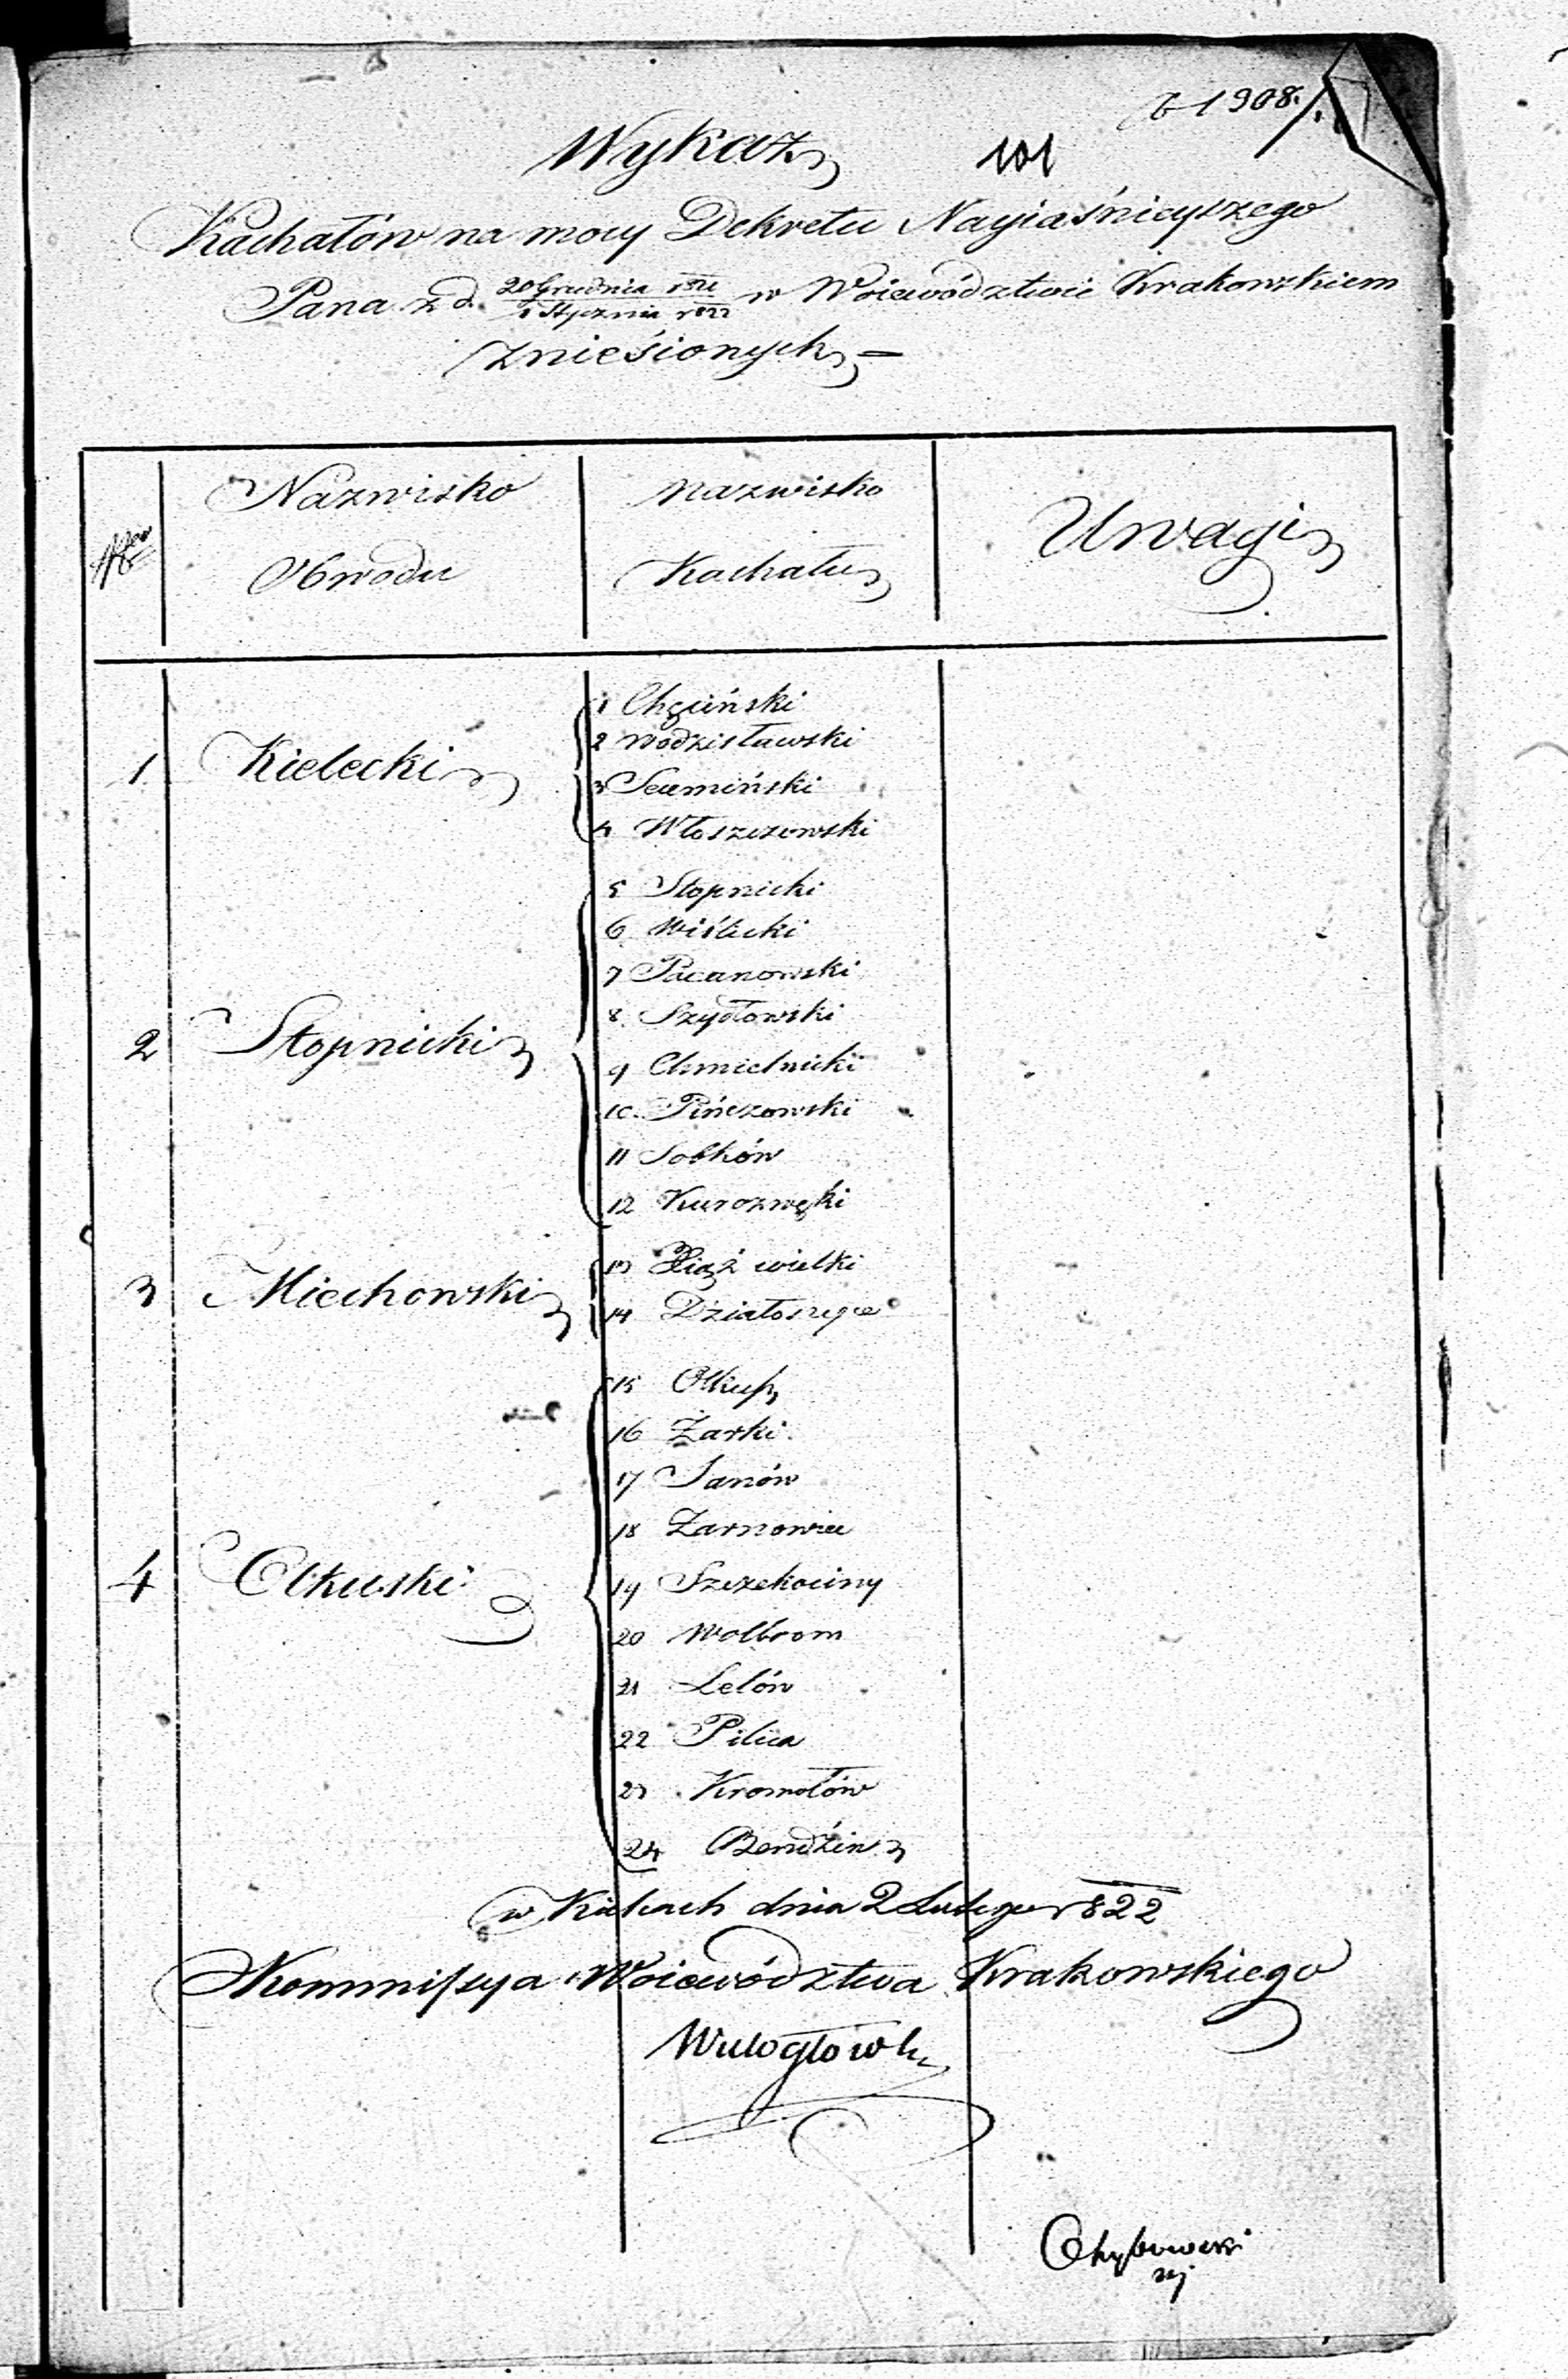 1908.
Wykaz
101
Kachałów na mocy Dekretu Nayiaśnieyszego
Pana z d. 20 Grudnia 1821 / 1 Stycznia 1822 w Woiewództwie Krakowskiem
Znieśionych
Nazwisko Obwodu
Nazwisko Kachału
Uwagi
1 Kielecki
1 Chęciński
2 Wodzisławski
3 Secemiński
4 Włoszczowski
2 Stopnicki
5 Stopnicki
6 Wiślicki
7 Pacanowski
8 Szydłowski
9 Chmielnicki
10 Pińczowski
11 Sobków
12 Kurozwęki
3 Miechowski
13 Xiąż wielki
14 Działoszyce
4 Olkuski
15 Olkusz
16 Żarki
17 Janów
18 Żarnowiec
19 Szczekociny
20 Wolbrom
21 Lelów
22 Pilica
23 Kromołów
24 Bendźin
w Kielcach dnia 2 Lutego 1822
Kommissya Woiewództwa Krakowskiego